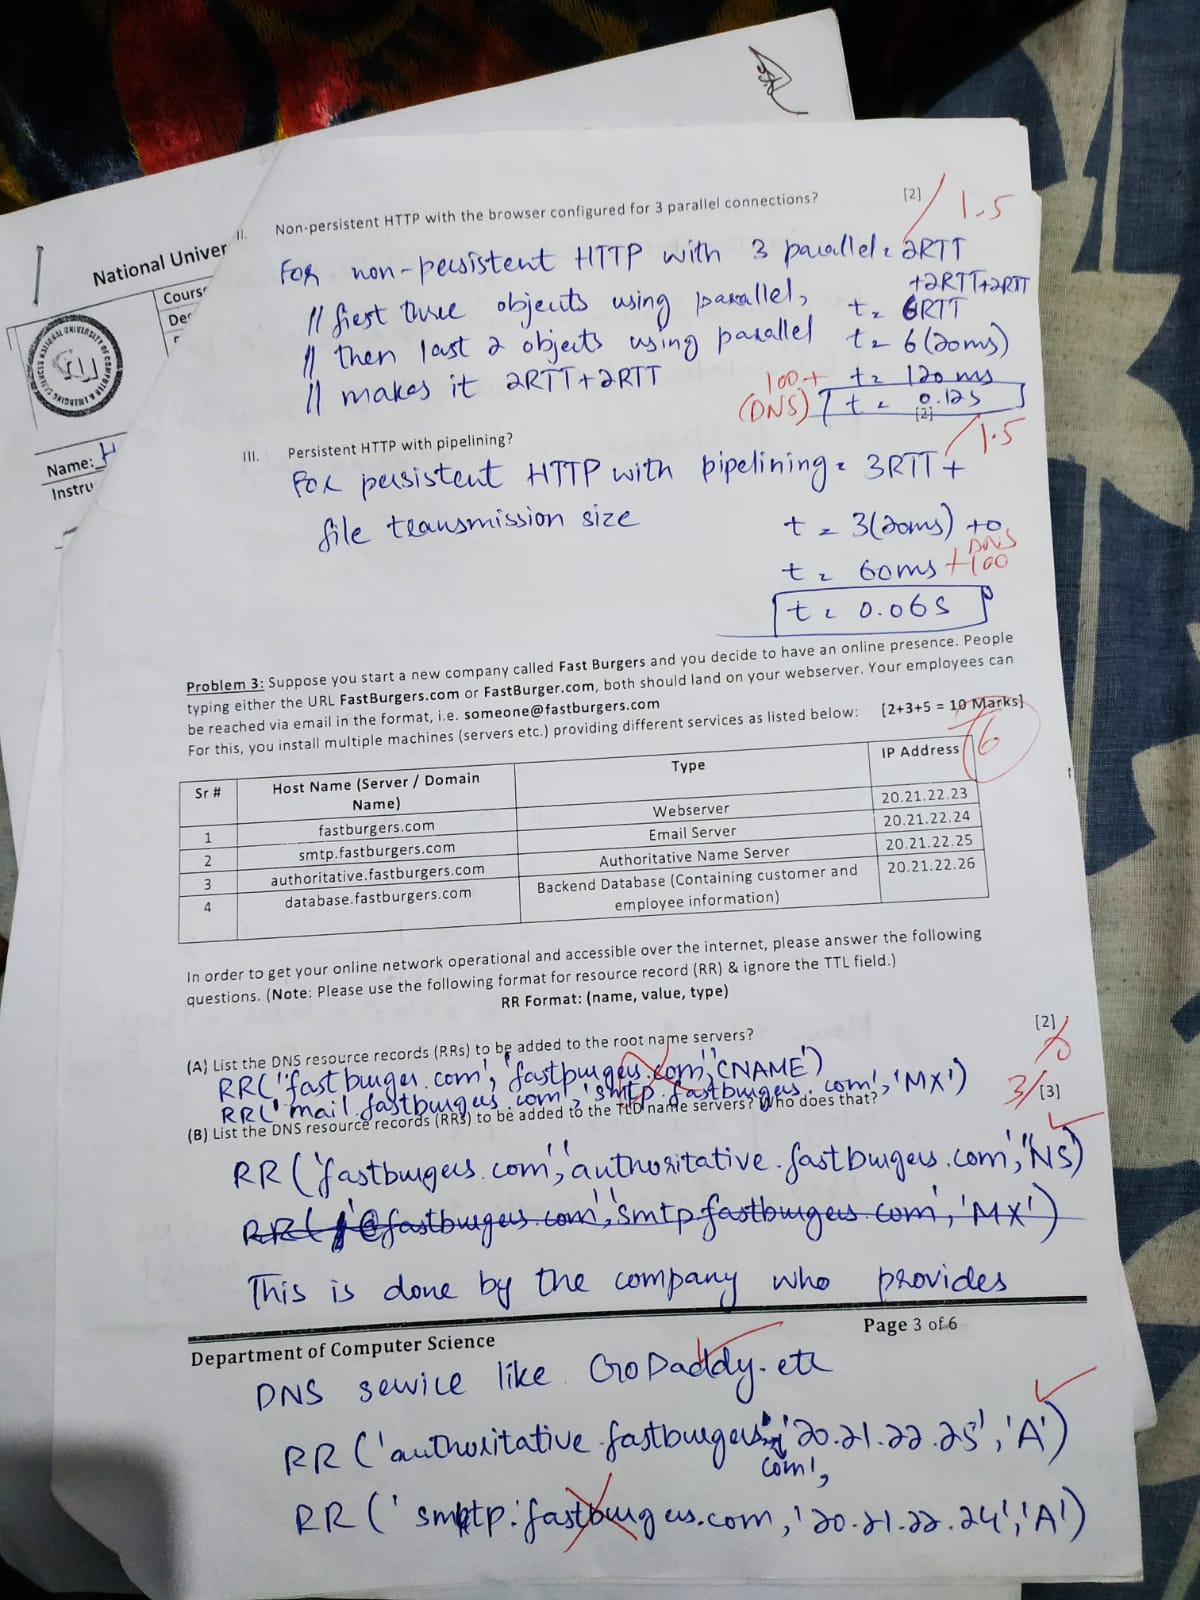 National Univer
Course
Name: H
Instru
II. Non-persistent HTTP with the browser configured for 3 parallel connections? [2] / 1.5
For non-persistent HTTP with 3 parallel = 2RTT
+2RTT+2RTT
// first three objects using parallel, t = 6RTT
// then last 2 objects using parallel t = 6(20ms)
// makes it 2RTT+2RTT 100+ t = 120 ms
(DNS) t = 0.12s
[2]
/1.5
III. Persistent HTTP with pipelining?
For persistent HTTP with pipelining = 3RTT +
file transmission size
t = 3(20ms) +0
DNS
t = 60ms +100
t = 0.06s
Problem 3: Suppose you start a new company called Fast Burgers and you decide to have an online presence. People
typing either the URL FastBurgers.com or FastBurger.com, both should land on your webserver. Your employees can
be reached via email in the format, i.e. someone@fastburgers.com
For this, you install multiple machines (servers etc.) providing different services as listed below: [2+3+5 = 10 Marks]
6
Sr # Host Name (Server / Domain Name) Type IP Address
1 fastburgers.com Webserver 20.21.22.23
2 smtp.fastburgers.com Email Server 20.21.22.24
3 authoritative.fastburgers.com Authoritative Name Server 20.21.22.25
4 database.fastburgers.com Backend Database (Containing customer and employee information) 20.21.22.26
In order to get your online network operational and accessible over the internet, please answer the following
questions. (Note: Please use the following format for resource record (RR) & ignore the TTL field.)
RR Format: (name, value, type)
(A) List the DNS resource records (RRs) to be added to the root name servers? [2] /0
RR('fastburger.com', 'fastburgers.com', 'CNAME')
RR('mail.fastburgers.com', 'smtp.fastburgers.com', 'MX')
(B) List the DNS resource records (RRs) to be added to the TLD name servers? Who does that? 3/ [3]
RR('fastburgers.com', 'authoritative.fastburgers.com', 'NS')
RR('@fastburgers.com', 'smtp.fastburgers.com', 'MX')
This is done by the company who provides
Department of Computer Science Page 3 of 6
DNS service like GoDaddy. etc
RR('authoritative.fastburgers.com', '20.21.22.25', 'A')
RR('smtp.fastburgers.com, '20.21.22.24', 'A')